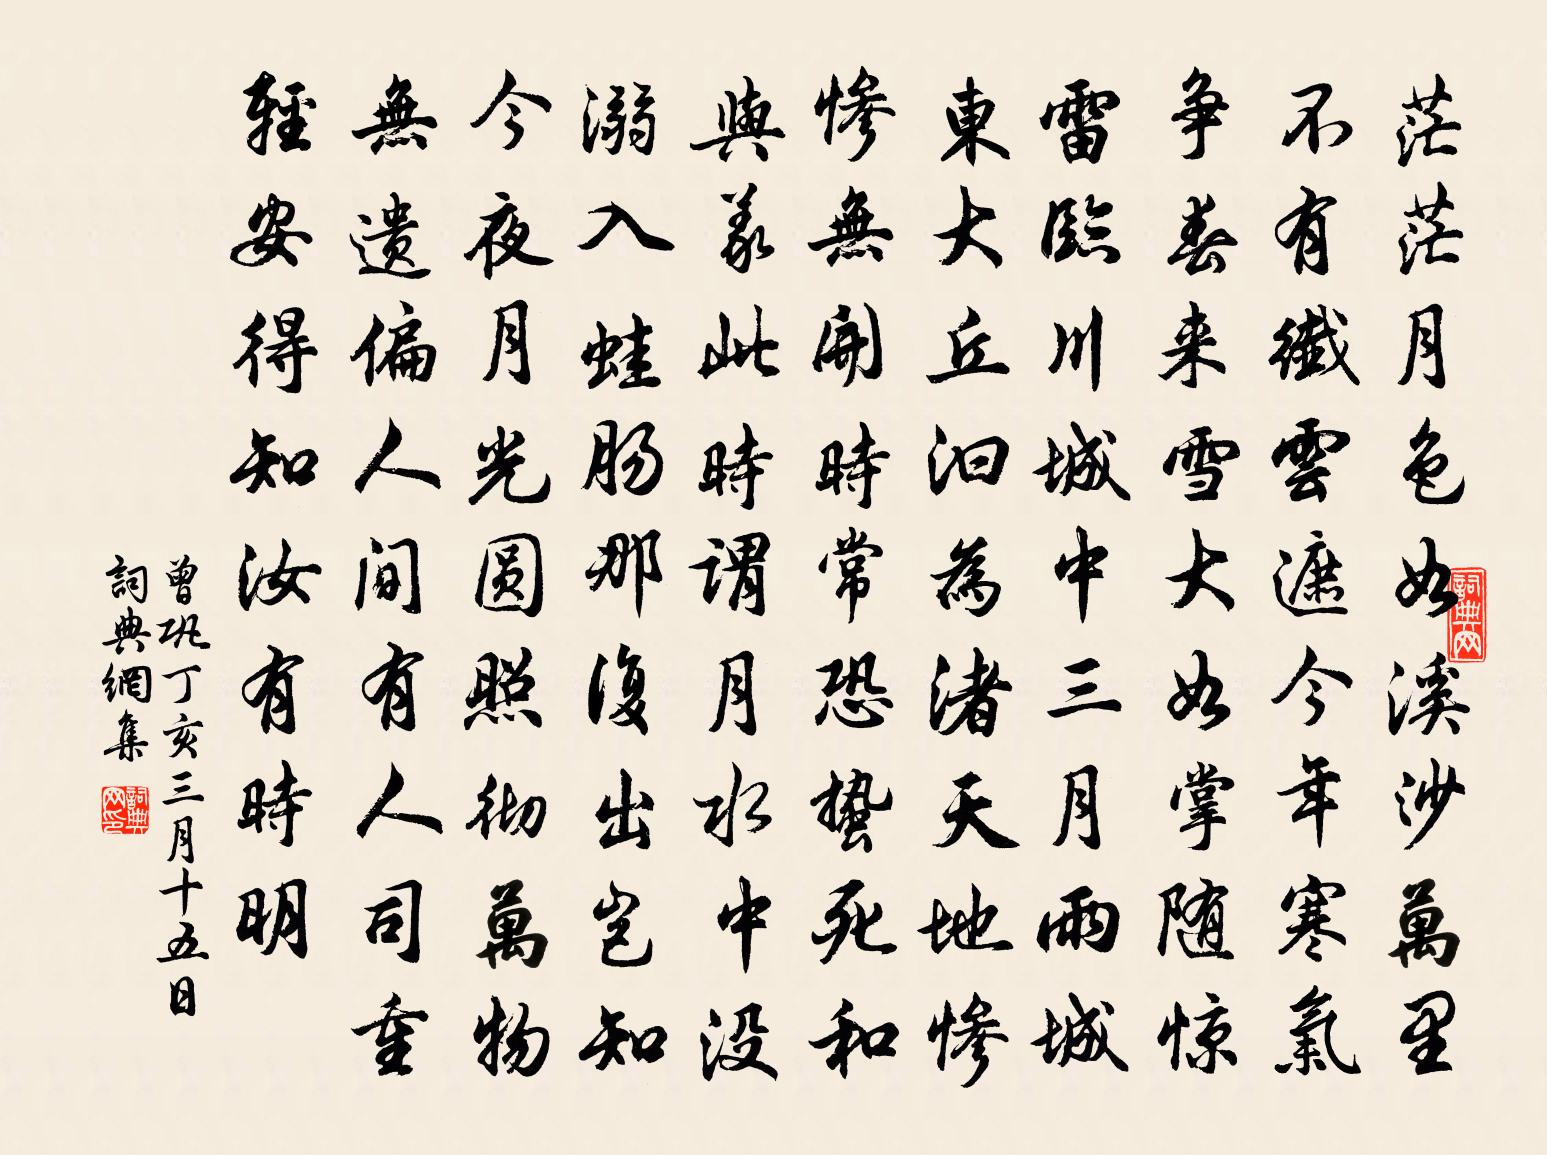 茫茫月色如溪沙萬里
不有纖雲遮今年寒氣
争春来雪大如掌随惊
雷臨川城中三月雨城
東大丘汩為渚天地慘
慘無開時常恐蟄死和
與羲此時謂月水中没
溺入蛙肠那復出岂知
今夜月光圆照彻萬物
無遗偏人间有人司重
輕安得知汝有時明
曾巩丁亥三月十五日
詞典網集
詞典网
詞典网印